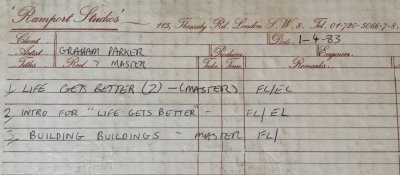 'Ramport Studios' — 115, Thessaly Rd. London S.W.8. Tel. 01-720-5066-7-8.
Client Date. 1-4-83
Artist GRAHAM PARKER Producer Engineer
Titles Reel 7 MASTER Take Time Remarks.
1, LIFE GETS BETTER (2) - (MASTER) FL/EL
2, INTRO FOR "LIFE GETS BETTER" - FL/EL
3, BUILDING BUILDINGS - MASTER FL/